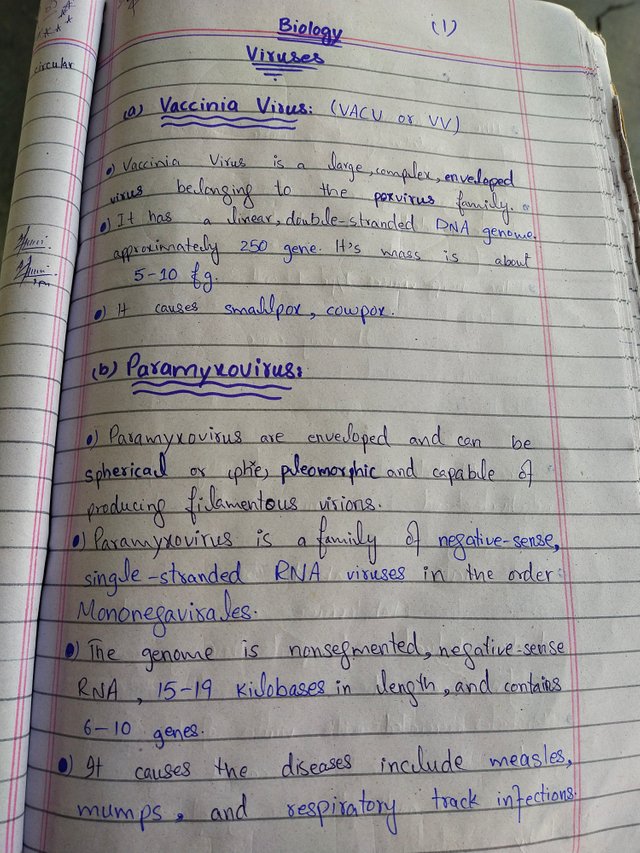 Biology
(1)
Viruses
circular
(a) Vaccinia Virus: (VACV or VV)
•) Vaccinia Virus is a large, complex, enveloped
virus belonging to the poxvirus family.
•) It has a linear, double-stranded DNA genome.
approximately 250 gene. It's mass is about
5-10 fg.
•) It causes smallpox, cowpox.
(b) Paramyxovirus:
•) Paramyxovirus are enveloped and can be
spherical or pleomorphic and capable of
producing filamentous virions.
•) Paramyxovirus is a family of negative-sense,
single-stranded RNA viruses in the order
Mononegavirales.
•) The genome is nonsegmented, negative-sense
RNA, 15-19 kilobases in length, and contains
6-10 genes.
•) It causes the diseases include measles,
mumps, and respiratory track infections.